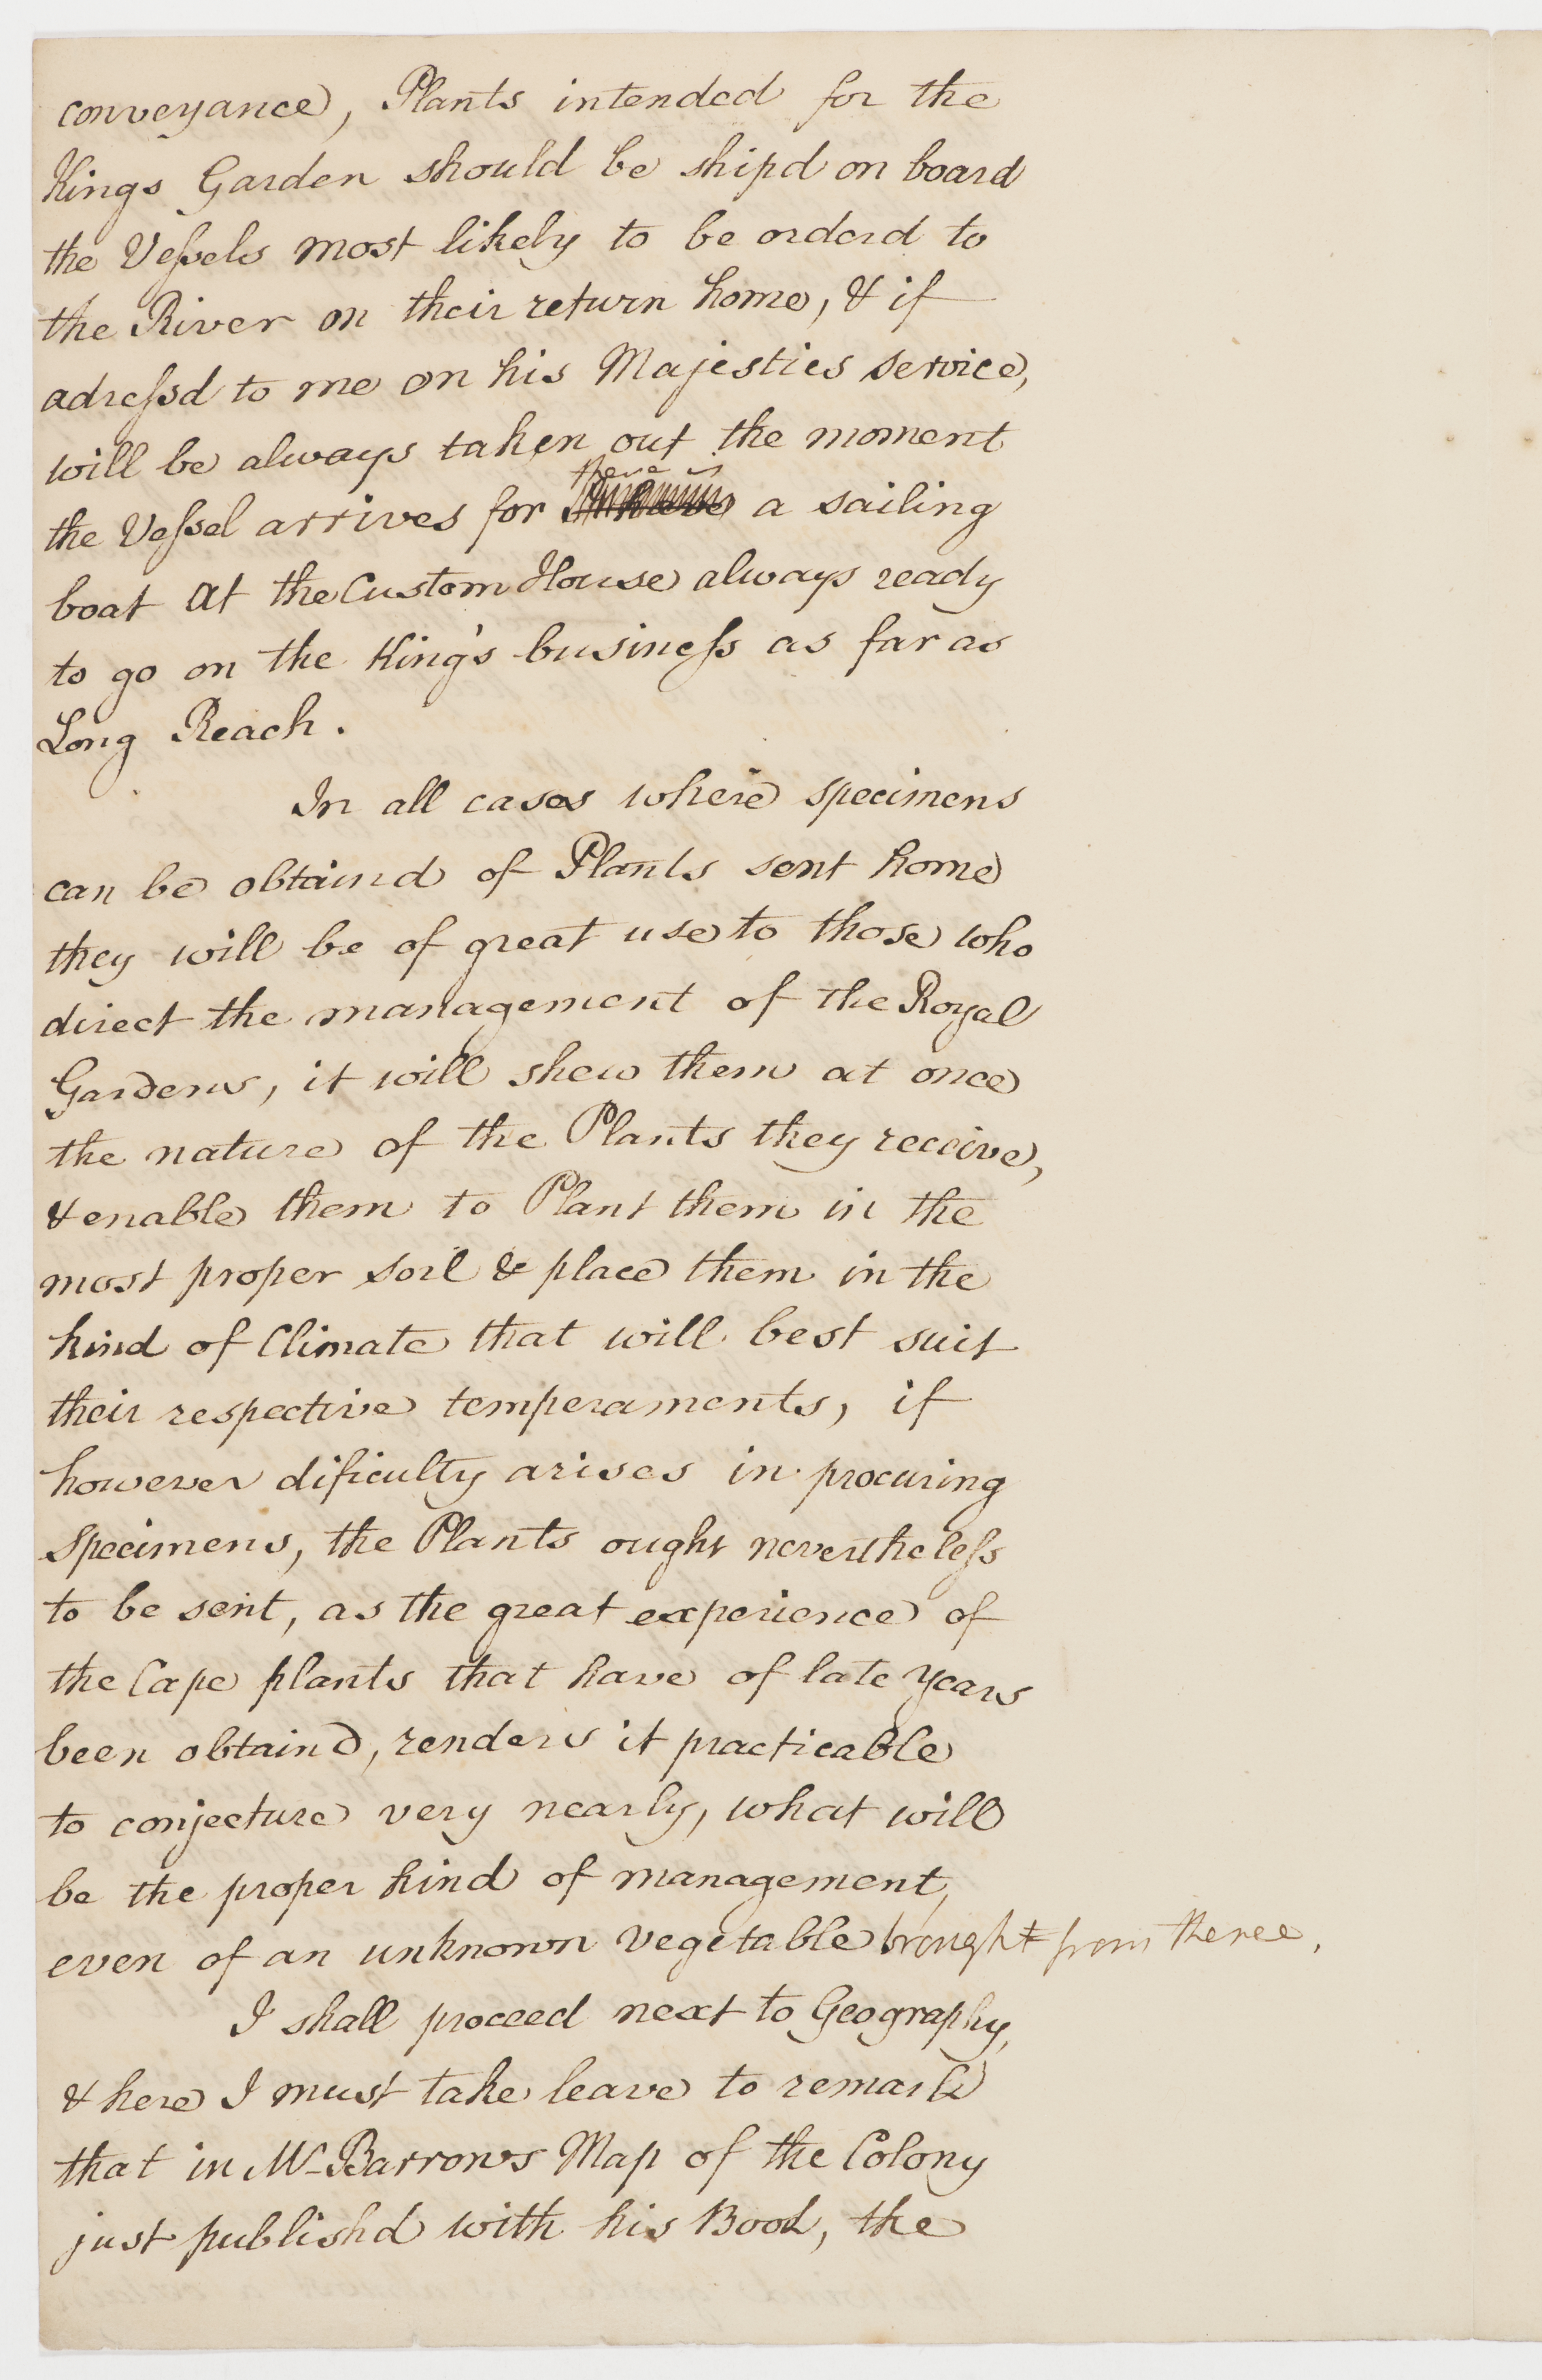 conveyance, Plants intended for the
Kings Garden should be shipd on board
the Veſsels most likely to be orderd to
the River on their return home, & if
adreſsd to me on his Majesties service,
will be always taken out the moment
there is
the Veſsel arrives for a sailing
boat at the Custom House always ready
to go on the King's busineſs as far as
Long Reach.
In all cases where specimens
can be obtaind of Plants sent home
they will be of great use to those who
direct the management of the Royal
Gardens, it will shew them at once
the nature of the Plants they receive,
& enable them to Plant them in the
most proper soil & place them in the
kind of Climate that will best suit
their respective temperaments, if
however dificulty arises in procuring
Specimens, the Plants ought nevertheleſs
to be sent, as the great experience of
the Cape plants that have of late years
been obtaind, renders it practicable
to conjecture very nearly, what will
be the proper kind of management,
even of an unknown vegetable brought from thence,
I shall proceed next to Geography,
& here I must take leave to remark
that in Mr Barrows Map of the Colony
just publishd with his Book, the